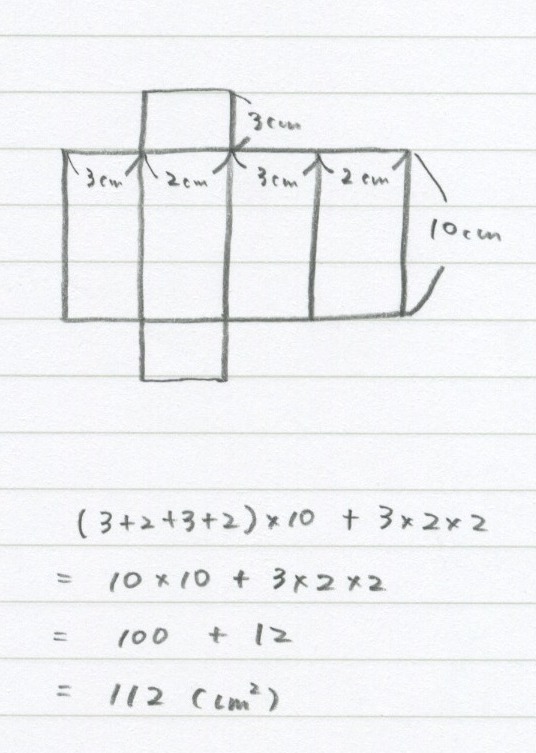 3cm
3cm 2cm 3cm 2cm
10cm
(3+2+3+2)×10 + 3×2×2
= 10×10 + 3×2×2
= 100 + 12
= 112 (cm²)